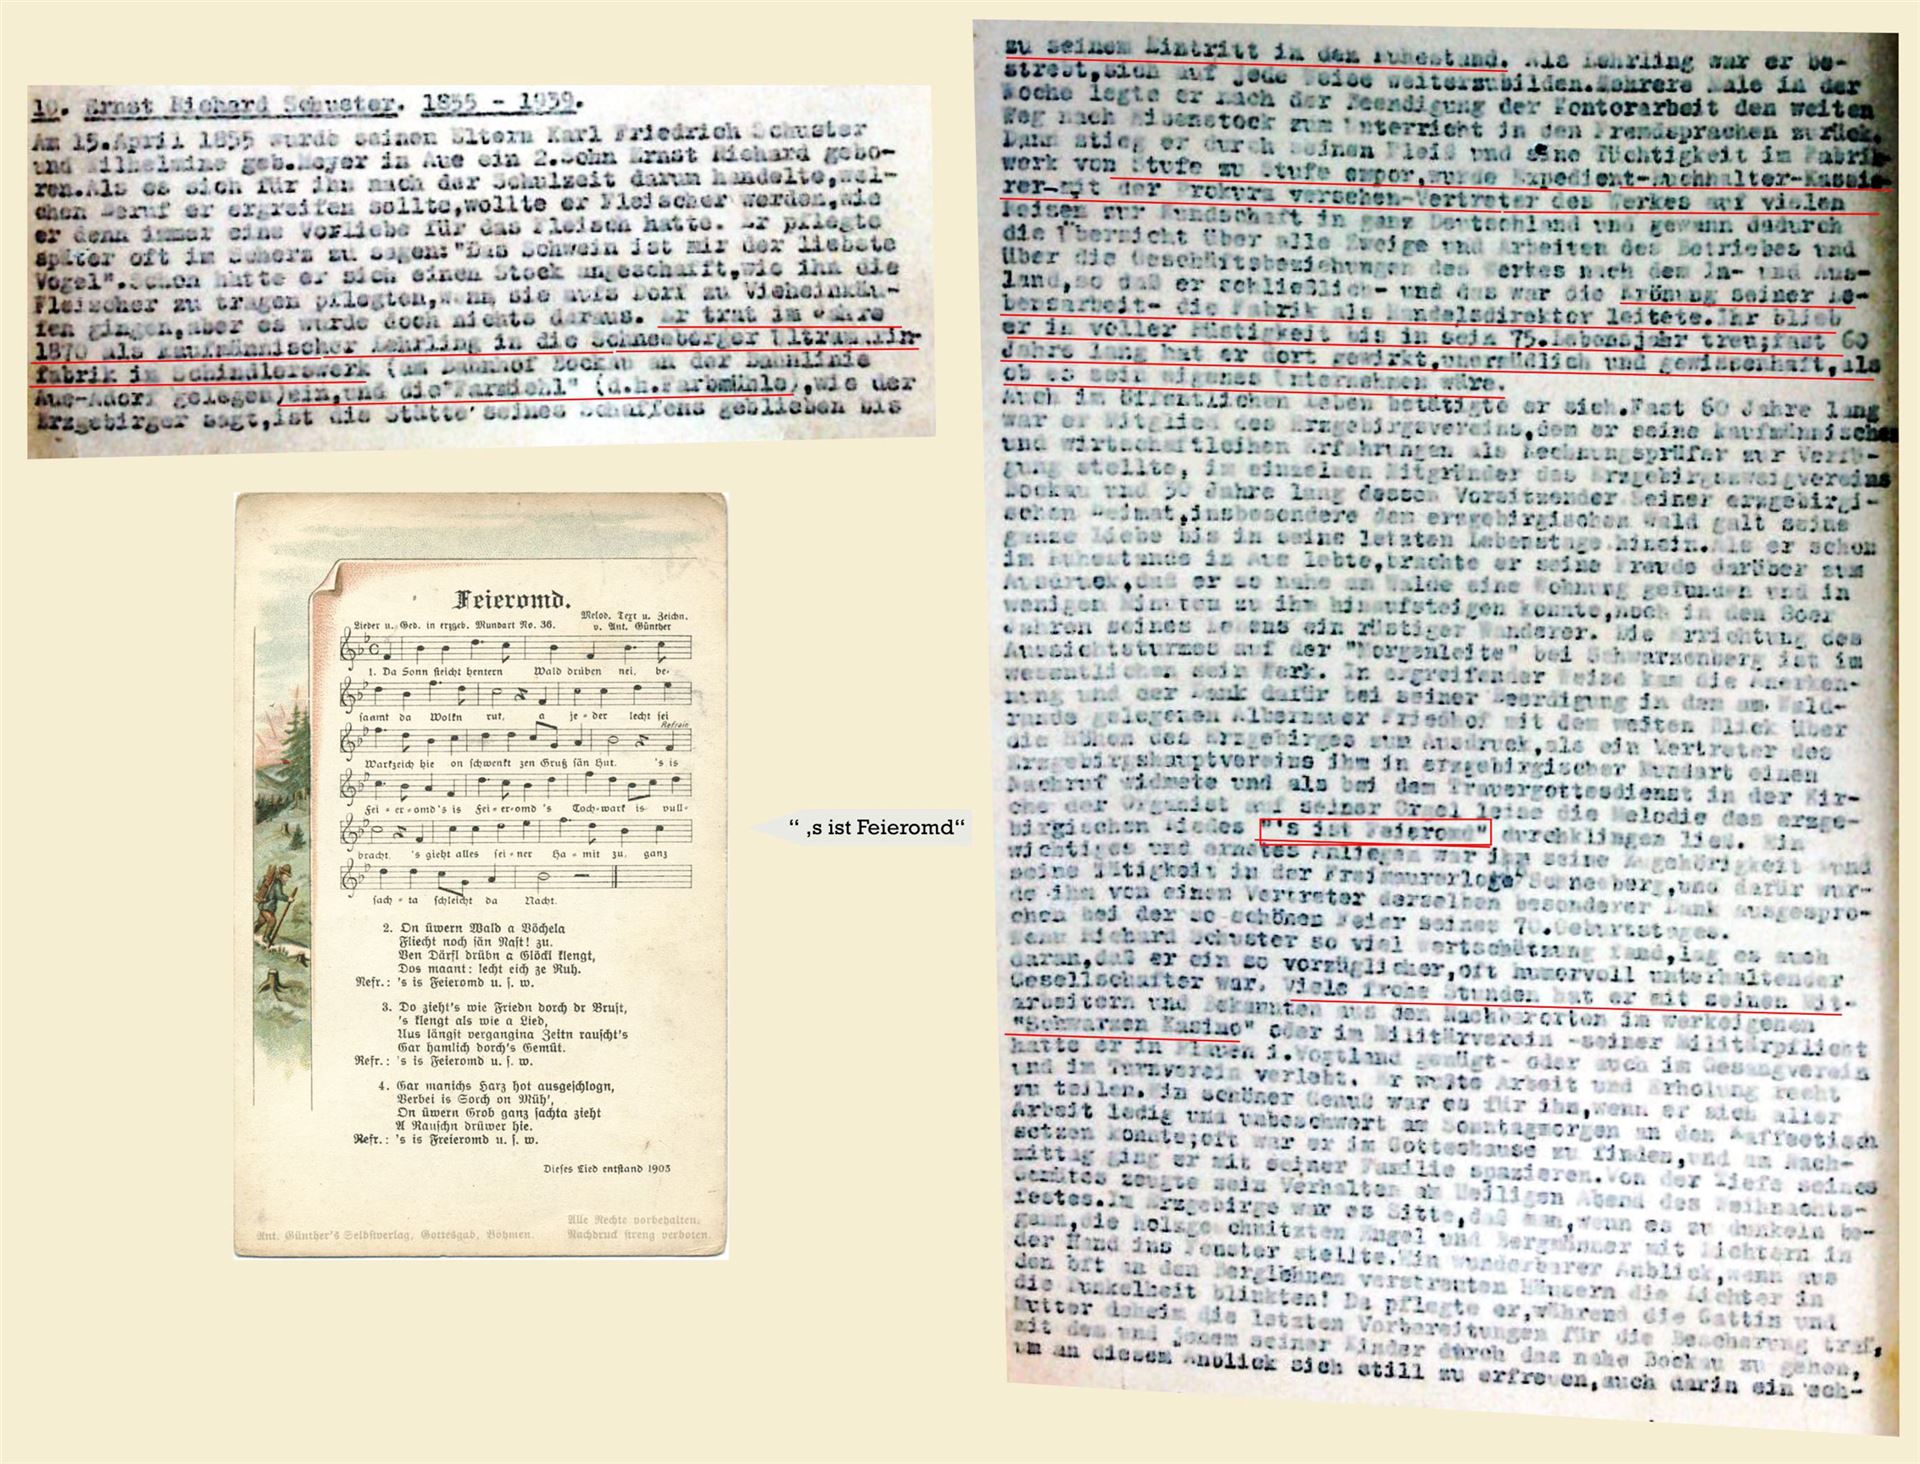 10. Ernst Richard Schuster. 1855 - 1939.
Am 15.April 1855 wurde seinen Eltern Karl Friedrich Schuster
und Wilhelmine geb.Meyer in Aue ein 2.Sohn Ernst Richard gebo-
ren.Als es sich für ihn nach der Schulzeit darum handelte,wel-
chen Beruf er ergreifen sollte,wollte er Fleischer werden,wie
er denn immer eine Vorliebe für das Fleisch hatte. Er pflegte
später oft im Scherz zu sagen:"Das Schwein ist mir der liebste
Vogel".Schon hatte er sich einen Stock angeschafft,wie ihn die
Fleischer zu tragen pflegten,wenn sie aufs Dorf zu Vieheinkäu-
fen gingen,aber es wurde doch nichts daraus. Er trat im Jahre
1870 als kaufmännischer Lehrling in die Schneeberger Ultramarin-
fabrik in Schindlerswerk (am Bahnhof Bockau an der Bahnlinie
Aue-Adorf gelegen)ein,und die"Farmiehl" (d.h.Farbmühle),wie der
Erzgebirger sagt,ist die Stätte seines Schaffens geblieben bis
Feieromd.
Lieder u. Ged. in erzgeb. Mundart No. 36.
Melod. Text u. Zeichn.
v. Ant. Günther
1. Da Sonn steicht hentern Wald drüben nei, be-
saamt da Wolkn rut, a je-der lecht sei
Refrain
Warkzeich hie on schwenkt zen Gruß sän Hut. 's is
Fei-er-omd 's is Fei-er-omd 's Toch-wark is vull-
bracht. 's gieht alles sei-ner Ha-mit zu, ganz
sach-ta schleicht da Nacht.
2. On üwern Wald a Vöchela
Fliecht noch sän Nast! zu.
Ven Därfl drübn a Glöckl klengt,
Dos maant: lecht eich ze Ruh.
Refr.: 's is Feieromd u. s. w.
3. Do zieht's wie Friedn dorch dr Brust,
's klengt als wie a Lied,
Aus längst vergangina Zeitn rauscht's
Gar hamlich dorch's Gemüt.
Refr.: 's is Feieromd u. s. w.
4. Gar manichs Harz hot ausgeschlogn,
Verbei is Sorch on Müh',
On üwern Grob ganz sachta zieht
A Rauschn drüwer hie.
Refr.: 's is Freieromd u. s. w.
Dieses Lied entstand 1903
Alle Rechte vorbehalten.
Ant. Günther's Selbstverlag, Gottesgab, Böhmen. Nachdruck streng verboten.
“ ‚s ist Feieromd“
zu seinem Eintritt in den Ruhestand. Als Lehrling war er be-
strebt,sich auf jede Weise weiterzubilden.Mehrere Male in der
Woche legte er nach der Beendigung der Kontorarbeit den weiten
Weg nach Eibenstock zum Unterricht in den Fremdsprachen zurück.
Dann stieg er durch seinen Fleiß und seine Tüchtigkeit im Fabrik-
werk von Stufe zu Stufe empor,wurde Expedient-Buchhalter-Kassie-
rer-mit der Prokura versehen-Vertreter des Werkes auf vielen
Reisen zur Kundschaft in ganz Deutschland und gewann dadurch
die Übersicht über alle Zweige und Arbeiten des Betriebes und
über die Geschäftsbeziehungen des Werkes nach dem In- und Aus-
land,so daß er schließlich- und das war die Krönung seiner Le-
bensarbeit- die Fabrik als Handelsdirektor leitete.Ihr blieb
er in voller Rüstigkeit bis in sein 75.Lebensjahr treu;fast 60
Jahre lang hat er dort gewirkt,unermüdlich und gewissenhaft,als
ob es sein eigenes Unternehmen wäre.
Auch im öffentlichen Leben betätigte er sich.Fast 60 Jahre lang
war er Mitglied des Erzgebirgsvereins,dem er seine kaufmännischen
und wirtschaftleihen Erfahrungen als Rechnungsprüfer zur Verfü-
gung stellte, im einzelnen Mitgründer des Erzgebirgszweigvereins
Bockau und 30 Jahre lang dessen Vorsitzender.Seiner erzgebirgi-
schen Heimat,insbesondere dem erzgebirgischen Wald galt seine
ganze Liebe bis in seine letzten Lebenstage hinein.Als er schon
im Ruhestande in Aue lebte,brachte er seine Freude darüber zum
Ausdruck,daß er so nahe am Walde eine Wohnung gefunden und in
wenigen Minuten zu ihm hinaufsteigen konnte,noch in den 80er
Jahren seines Lebens ein rüstiger Wanderer. Die Errichtung des
Aussichtsturmes auf der "Morgenleite" bei Schwarzenberg ist im
wesentlichen sein Werk. In ergreifender Weise kam die Anerken-
nung und der Dank dafür bei seiner Beerdigung in dem am Wald-
rande gelegenen Albernauer Friedhof mit dem weiten Blick über
die Höhen des Erzgebirges zum Ausdruck,als ein Vertreter des
Erzgebirgshauptvereins ihm in erzgebirgischer Mundart einen
Nachruf widmete und als bei dem Trauergottesdienst in der Kir-
che der Organist auf seiner Orgel leise die Melodie des erzge-
birgischen Liedes "'s ist Feieromd" durchklingen ließ. Ein
wichtiges und ernstes Anliegen war ihm seine Zugehörigkeit und
seine Tätigkeit in der Freimaurerloge Schneeberg,und dafür wur-
de ihm von einem Vertreter derselben besonderer Dank ausgespro-
chen bei der so schönen Feier seines 70.Geburtstages.
Wenn Richard Schuster so viel Wertschätzung fand,lag es auch
daran,daß er ein so vorzüglicher,oft humorvoll unterhaltender
Gesellschafter war. Viele frohe Stunden hat er mit seinen Mit-
arbeitern und Bekannten aus den Nachbarorten im werkeigenen
"Schwarzen Kasino" oder im Militärverein -seiner Militärpflicht
hatte er in Plauen i.Vogtland genügt- oder auch im Gesangverein
und im Turnverein verlebt. Er wußte Arbeit und Erholung recht
zu teilen.Ein schöner Genuß war es für ihn,wenn er sich aller
Arbeit ledig und unbeschwert am Sonntagmorgen an den Kaffeetisch
setzen konnte;oft war er im Gotteshause zu finden,und am Nach-
mittag ging er mit seiner Familie spazieren.Von der Tiefe seines
Gemütes zeugte sein Verhalten am Heiligen Abend des Weihnachts-
festes.Im Erzgebirge war es Sitte,daß man,wenn es zu dunkeln be-
gann,die holzgeschnitzten Engel und Bergmänner mit Lichtern in
der Hand ins Fenster stellte.Ein wunderbarer Anblick,wenn aus
den oft an den Berglehnen verstreuten Häusern die Lichter in
die Dunkelheit blinkten! Da pflegte er,während die Gattin und
Mutter daheim die letzten Vorbereitungen für die Bescherung traf,
mit dem und jenem seiner Kinder durch das nahe Bockau zu gehen,
um an diesem Anblick sich still zu erfreuen,auch darin ein ech-